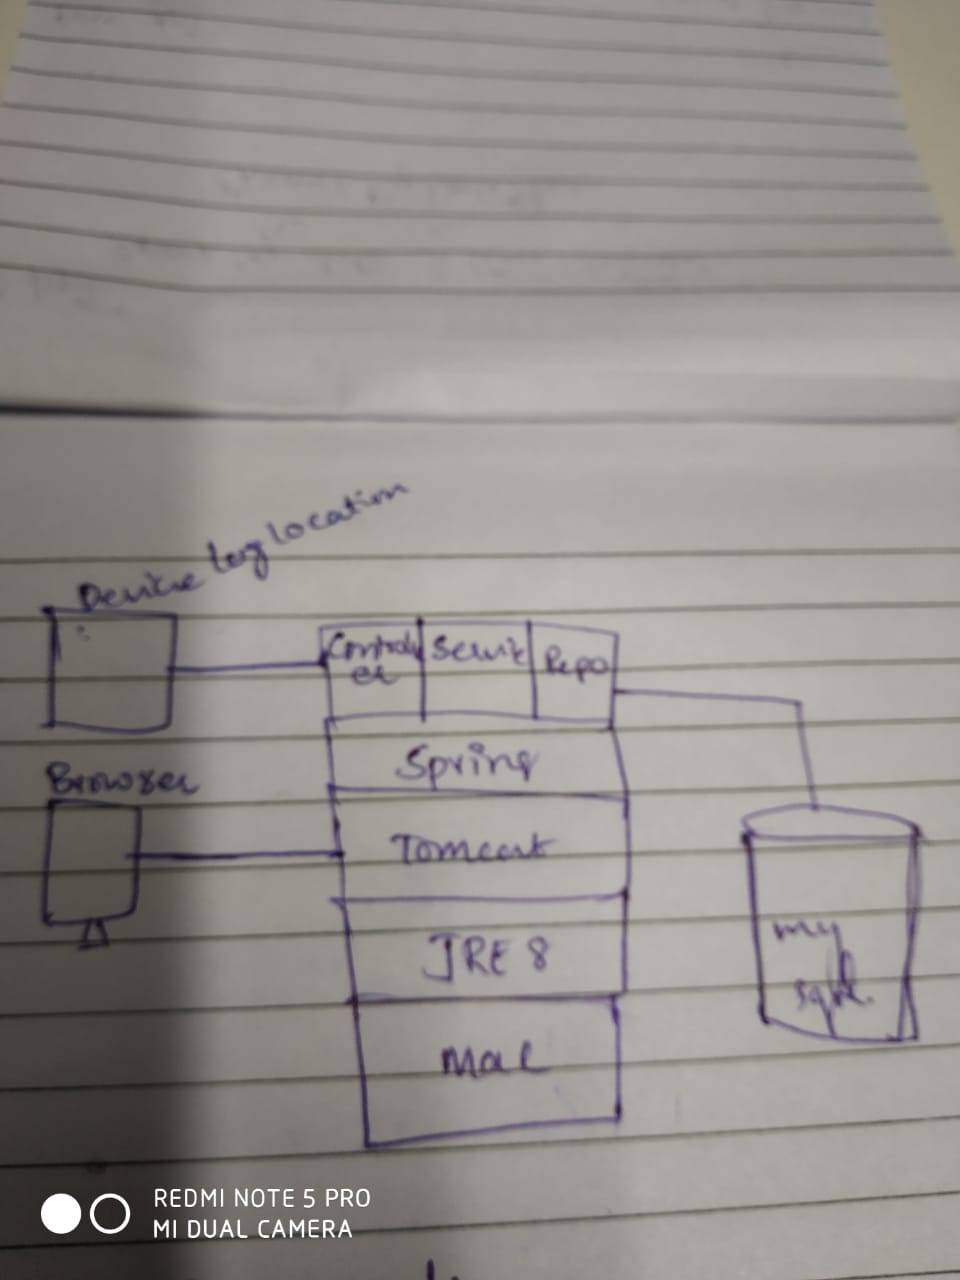 Device log location
Controller
Servic
Repo
Spring
Browser
Tomcat
JRE 8
Mac
my
sql.
REDMI NOTE 5 PRO
MI DUAL CAMERA